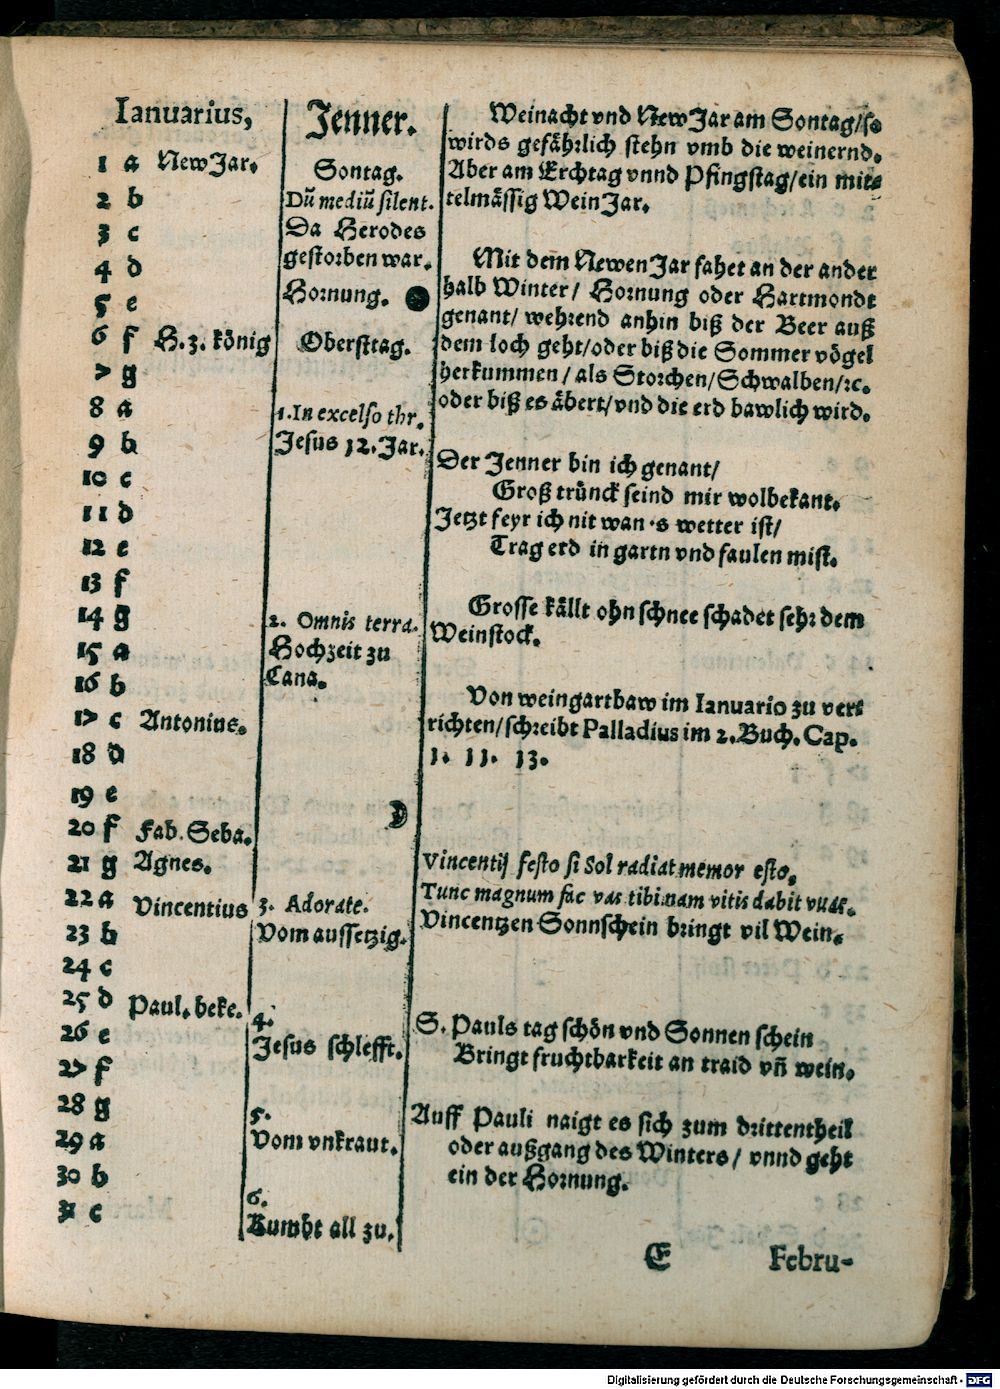 Ianuarius,
1 a New Jar.
2 b
3 c
4 d
5 e
6 f H. 3. könig
7 g
8 a
9 b
10 c
11 d
12 e
13 f
14 g
15 a
16 b
17 c Antonius.
18 d
19 e
20 f Fab. Seba.
21 g Agnes.
22 a Vincentius
23 b
24 c
25 d Paul. beke.
26 e
27 f
28 g
29 a
30 b
31 c
Jenner.
Sontag.
Dū mediū silent.
Da Herodes
gestorben war.
Hornung. ●
Oberstag.
1. In excelso thr.
Jesus 12. Jar.
2. Omnis terra.
Hochzeit zu
Cana.
☽
3. Adorate.
Vom aussetzig.
4.
Jesus schlefft.
5.
Vom vnkraut.
6.
Kumbt all zu.
Weinacht vnd New Jar am Sontag/so
wirds gefährlich stehn vmb die weinernd.
Aber am Erchtag vnnd Pfingstag/ein mit-
telmässig Wein Jar.
Mit dem Newen Jar fahet an der ander
halb Winter/ Hornung oder Hartmondt
genant/ wehrend anhin biß der Beer auß
dem loch geht/oder biß die Sommer vögel
herkummen/ als Storchen/Schwalben/ꝛc.
oder biß es äbert/vnd die erd bawlich wird.
Der Jenner bin ich genant/
Groß trünck seind mir wolbekant.
Jetzt feyr ich nit wan's wetter ist/
Trag erd in gartn vnd faulen mist.
Grosse källt ohn schnee schadet sehr dem
Weinstock.
Von weingartbaw im Ianuario zu ver-
richten/schreibt Palladius im 2. Buch. Cap.
1. 11. 13.
Vincentij festo si Sol radiat memor esto,
Tunc magnum fac vas tibi nam vitis dabit vuas.
Vincentzen Sonnschein bringt vil Wein.
S. Pauls tag schön vnd Sonnen schein
Bringt fruchtbarkeit an traid vñ wein.
Auff Pauli naigt es sich zum drittentheil
oder außgang des Winters/ vnnd geht
ein der Hornung.
E Febru-
Digitalisierung gefördert durch die Deutsche Forschungsgemeinschaft - DFG